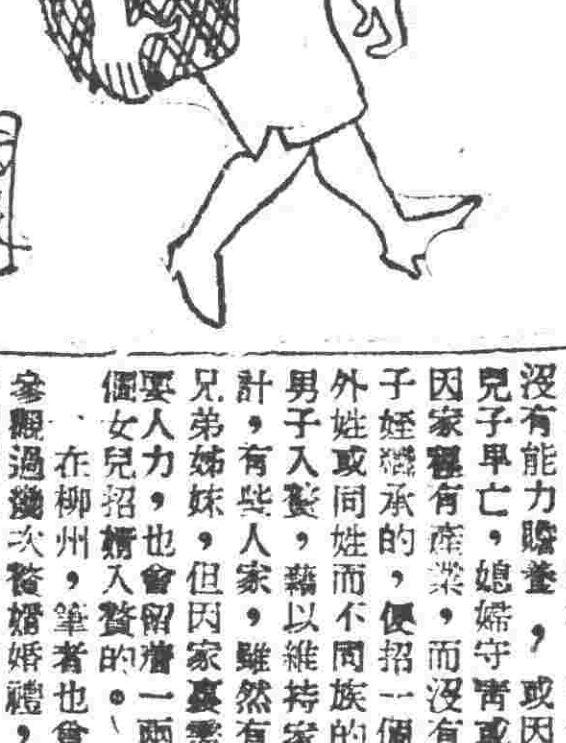 沒有能力贍養，或因
兒子早亡，媳婦守寡或
因家裡有產業，而沒有
子姪繼承的，便招一個
外姓或同姓而不同族的
男子入贅，藉以維持家
計，有些人家，雖然有
兄弟姊妹，但因家裏需
要人力，也會留着一兩
個女兒招婿入贅的。
在柳州，筆者也會
參觀過幾次贅婿婚禮，